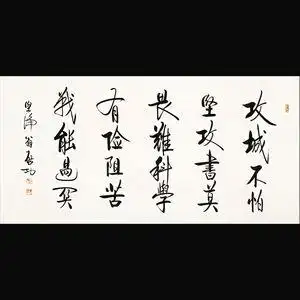 攻城不怕
堅攻書莫
畏難科學
有險阻苦
戰能過關
堅淨翁啓功